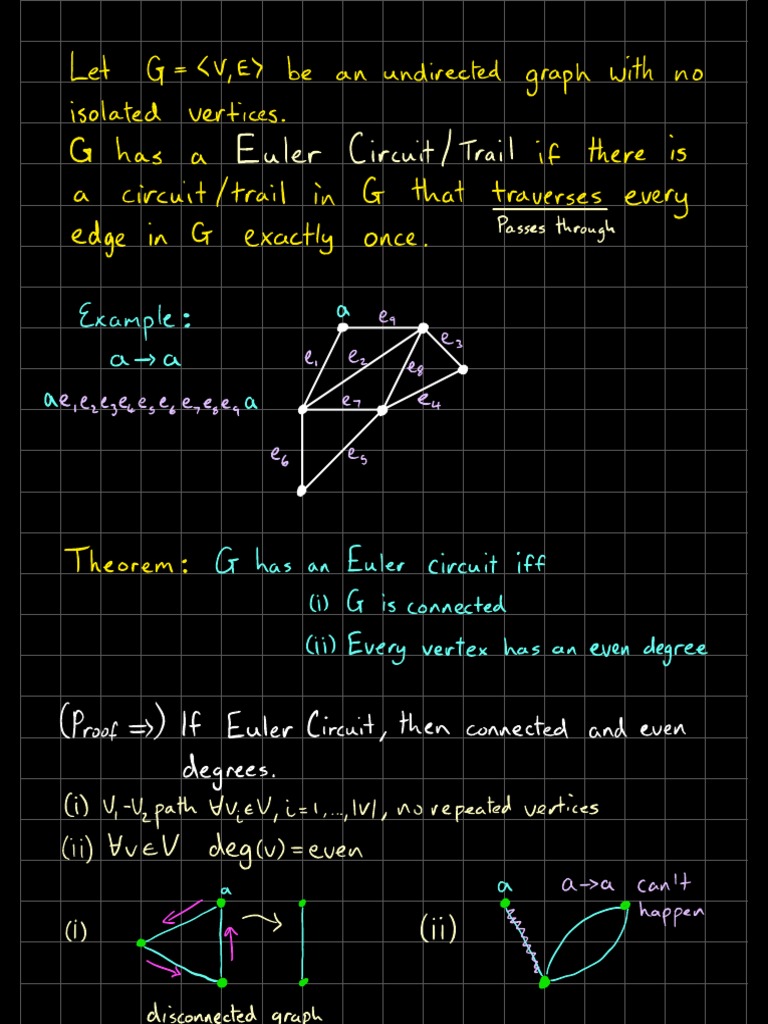 Let G = <V,E> be an undirected graph with no
isolated vertices.
G has a Euler Circuit/Trail if there is
a circuit/trail in G that traverses every
Passes through
edge in G exactly once.
Example:
a → a
a e₁e₂e₃e₄e₅e₆e₇e₈e₉ a
a
e₉
e₃
e₁
e₂
e₈
e₇
e₄
e₆
e₅
Theorem: G has an Euler circuit iff
(i) G is connected
(ii) Every vertex has an even degree
(Proof ⇒) If Euler Circuit, then connected and even
degrees.
(i) V₁-V₂ path ∀vᵢ∈V, i=1,...,|V|, no repeated vertices
(ii) ∀v∈V deg(v) = even
(i)
a
disconnected graph
(ii)
a
a→a can't
happen